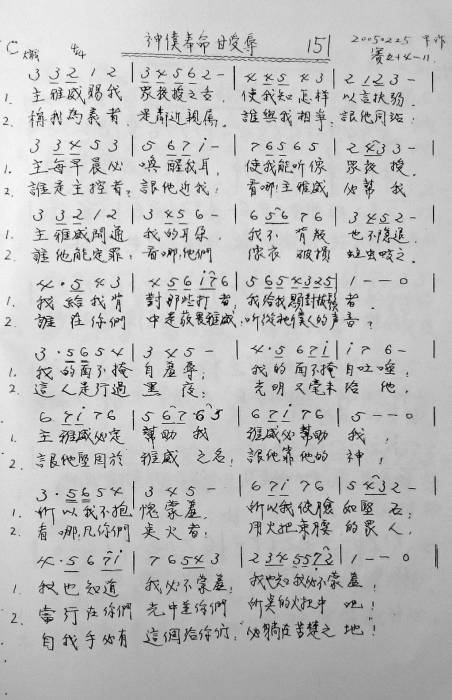 C 4/4 神僕奉命甘受辱 151 20050225
賽50:4-11
3 3 2 1 2 | 3 4 5 6 2 - | 4 4 5 4 3 | 2 1 2 3 - |
1. 主雅威賜我 眾教授之舌, 使我知怎样 以言扶弱.
2. 稱我為義者 是鄰近親屬. 誰與我相爭, 讓他同站;
3 3 4 5 3 | 5 6 7 i - | 7 6 5 6 5 | 2 4 3 3 - |
1. 主每早晨必 喚醒我耳, 使我能听像 眾教授.
2. 誰是主控者? 讓他近我! 看哪!主雅威 必幫我
3 3 2 1 2 | 3 4 5 6 - | 6 5 6 7 6 | 3 4 5 2 - |
1. 主雅威開通 我的耳朵, 我不背叛 也不後退.
2. 誰他能定罪, 看哪!他們 像衣破損 蛀虫咬之.
4 · 5 4 3 | 4 5 6 i 7 6 | 5 6 5 4 3 2 5 | 1 - - 0 |
1. 我給我背 對那些打者, 我給我顋對拔鬚者.
2. 誰在你們 中是敬畏雅威, 听從祂僕人的声音?
3 · 5 6 5 4 | 3 4 5 - | 4 · 5 6 7 i | i 7 6 - |
1. 我的面不掩 自羞辱; 我的面不掩 自吐唾;
2. 這人走行過 黑夜; 光明又毫未 给他,
6 7 i 7 6 | 5 6 7 6 5 | 6 7 i 7 6 | 5 - - 0 |
1. 主雅威必定 幫助我 雅威必幫助 我;
2. 讓他堅固於 雅威之名; 讓他靠他的 神;
3 · 5 6 5 4 | 3 4 5 - | 3 · 5 6 7 i | 5 4 3 2 - |
1. 所以我不抱 愧蒙羞, 所以我使臉 如堅石;
2. 看哪,凡你們 美火者; 用火把束腰 的眾人,
4 · 5 6 7 i | 7 6 5 4 3 | 2 3 4 5 5 7 2 | 1 - - 0 |
1. 我也知道 我必不蒙羞; 我也知我必不蒙羞;
2. 當行在你們 光中並你們 所美的火把中 吧!
自我手必有 這個给你们; 必躺在苦楚之 地!